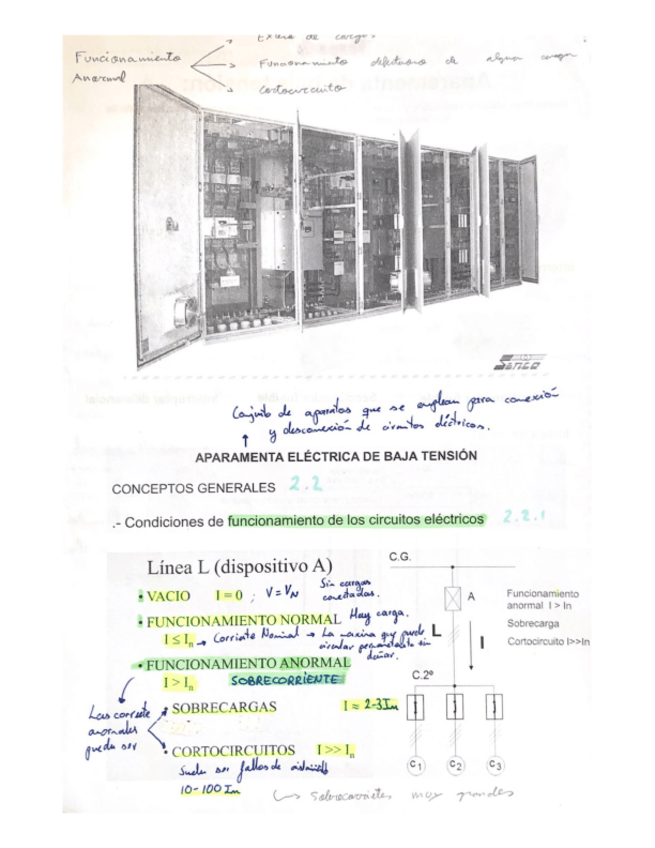 Exceso de cargas
Funcionamiento
Anormal
Funcionamiento defectuoso de alguna carga
Cortocircuito
Senco
Conjunto de aparatos que se emplean para conexión
y desconexión de circuitos eléctricos.
APARAMENTA ELÉCTRICA DE BAJA TENSIÓN
CONCEPTOS GENERALES 2.2
.- Condiciones de funcionamiento de los circuitos eléctricos 2.2.1
Línea L (dispositivo A)
• VACIO I = 0 ; V = VN Sin cargas conectadas.
• FUNCIONAMIENTO NORMAL Hay carga.
I ≤ In → Corriente Nominal → La maxima que puede
circular permanentemente sin
dañar.
• FUNCIONAMIENTO ANORMAL
I > In SOBRECORRIENTE
Las corrientes
anormales
puede ser
• SOBRECARGAS I = 2-3In
• CORTOCIRCUITOS I >> In
Suele ser fallos de
10-100 In
Sobrecorrientes muy grandes
C.G.
A
L
I
C.2º
C1 C2 C3
Funcionamiento
anormal I > In
Sobrecarga
Cortocircuito I>>In